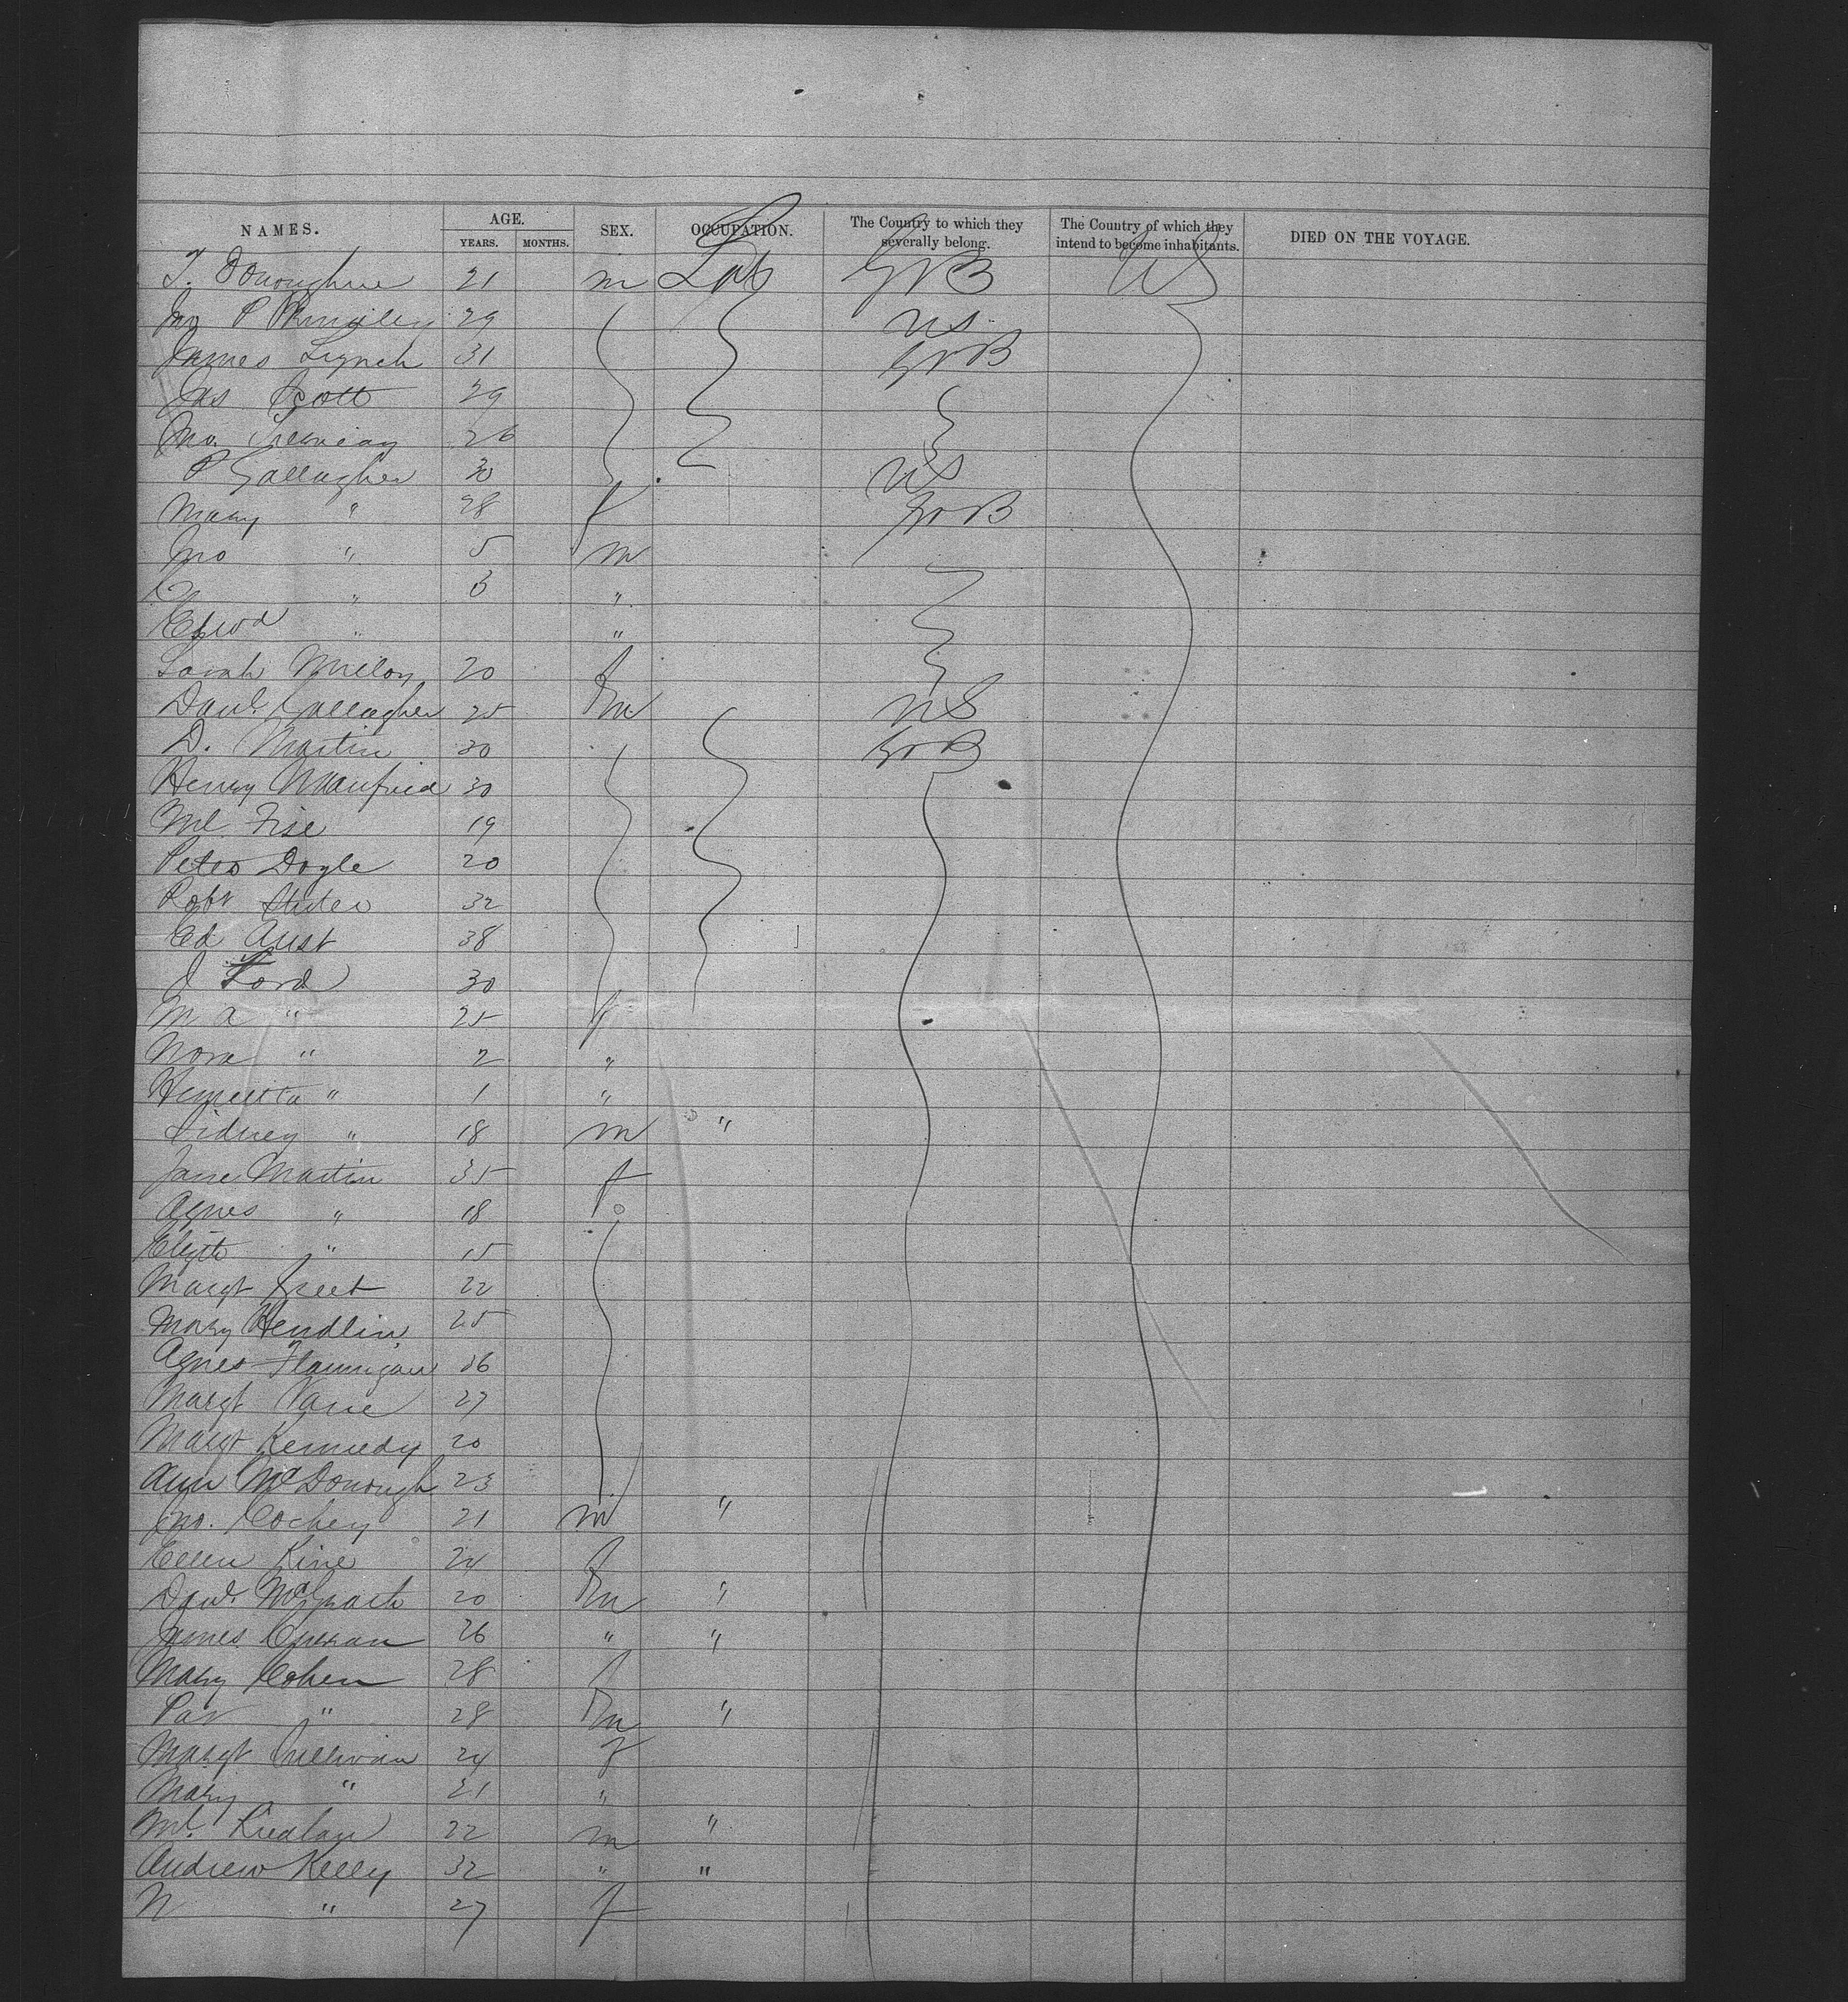 NAMES. AGE. YEARS. MONTHS. SEX. OCCUPATION. The Country to which they severally belong. The Country of which they intend to become inhabitants. DIED ON THE VOYAGE.
T. Donoughue 21 m Lab GrB US
Jno P 29 US
James Lynch 31 GrB
Jas Scott 29
Jno. 26
P Gallagher 30 US
Mary " 28 f GrB
Jno " 5 m
" 3 "
Edwd " "
Sarah 20 f
Danl. Gallagher 25 m US
D. Martin 30 GrB
Henry Manfried 30
Ml. Fise 19
Peter Doyle 20
Robt 32
Ed Aust 38
J Ford 30
M A " 25 f
Nora " 2 "
Henrietta " 1 "
Sidney " 18 m "
Jane Martin 35 f
Agnes " 18
" 15
Margt 22
Mary Hendlin 25
Agnes Flannigan 36
Margt Vane 27
Margt Kennedy 20
Ann McDonough 23
Jno. 21 m "
Ellen Kine 24 f
Danl. McGrath 20 m "
James Curran 26 " "
Mary Cohen 28 f
Pat " 28 m "
Margt Sullivan 24 f
Mary " 21 "
Ml. 22 m "
Andrew Kelly 32 " "
N " 27 f